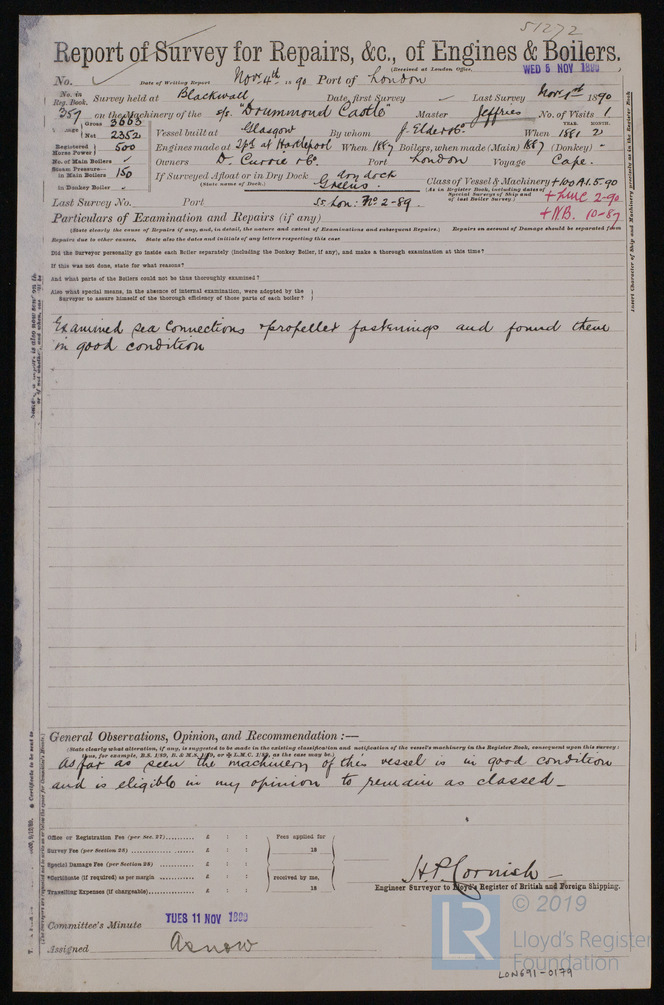 51272
Report of Survey for Repairs, &c., of Engines & Boilers.
(Received at London Office, WED 5 NOV 1890
No. Date of Writing Report Novr 4th 1890 Port of London
No. in Reg. Book. Survey held at Blackwall Date, first Survey — Last Survey Novr 1st 1890
357 on the Machinery of the s/s. "Drummond Castle" Master Jeffries No. of Visits 1
Gross 3663
Net 2352
Vessel built at Glasgow By whom J. Elder & Co. When YEAR. 1881 MONTH. 2
Registered Horse Power 500 Engines made at 2ps at Hartlepool When 1887 Boilers, when made (Main) 1887 (Donkey) -
No. of Main Boilers Owners D. Currie & Co. Port London Voyage Cape.
Steam Pressure— in Main Boilers 150
in Donkey Boiler
If Surveyed Afloat or in Dry Dock dry dock
(State name of Dock.) Greens.
Class of Vessel & Machinery +100A1. 5.90
(As in Register Book, including dates of Special Surveys of Ship and of last Boiler Survey.) +LMC 2-90
+NB. 10-87
Last Survey No. Port SS. Lon: No 2-89
Particulars of Examination and Repairs (if any)
(State clearly the cause of Repairs if any, and, in detail, the nature and extent of Examinations and subsequent Repairs.) Repairs on account of Damage should be separated from
Repairs due to other causes. State also the dates and initials of any letters respecting this case
Did the Surveyor personally go inside each Boiler separately (including the Donkey Boiler, if any), and make a thorough examination at this time?
If this was not done, state for what reasons?
And what parts of the Boilers could not be thus thoroughly examined?
Also what special means, in the absence of internal examination, were adopted by the
Surveyor to assure himself of the thorough efficiency of those parts of each boiler?
Examined sea connections & propeller fastenings and found them
in good condition
General Observations, Opinion, and Recommendation :—
(State clearly what alteration, if any, is suggested to be made in the existing classification and notification of the vessel's machinery in the Register Book, consequent upon this survey:
thus, for example, B.S. 1/89, B. & M.S. 1/89, or L.M.C. 1/89, as the case may be.)
As far as seen the machinery of this vessel is in good condition
and is eligible in my opinion to remain as classed —
Office or Registration Fee (per Sec. 27) £ : : Fees applied for
Survey Fee (per Section 28) £ : : 18
Special Damage Fee (per Section 28) £ : :
*Certificate (if required) as per margin £ : : received by me,
Travelling Expenses (if chargeable) £ : : 18
H. P. Cornish —
Engineer Surveyor to Lloyd's Register of British and Foreign Shipping.
Committee's Minute TUES 11 NOV 1890
Assigned As now
Insert Character of Ship and Machinery precisely as in the Register Book
* Certificate to be sent to
LR
© 2019
Lloyd's Register
Foundation
LON691-0179